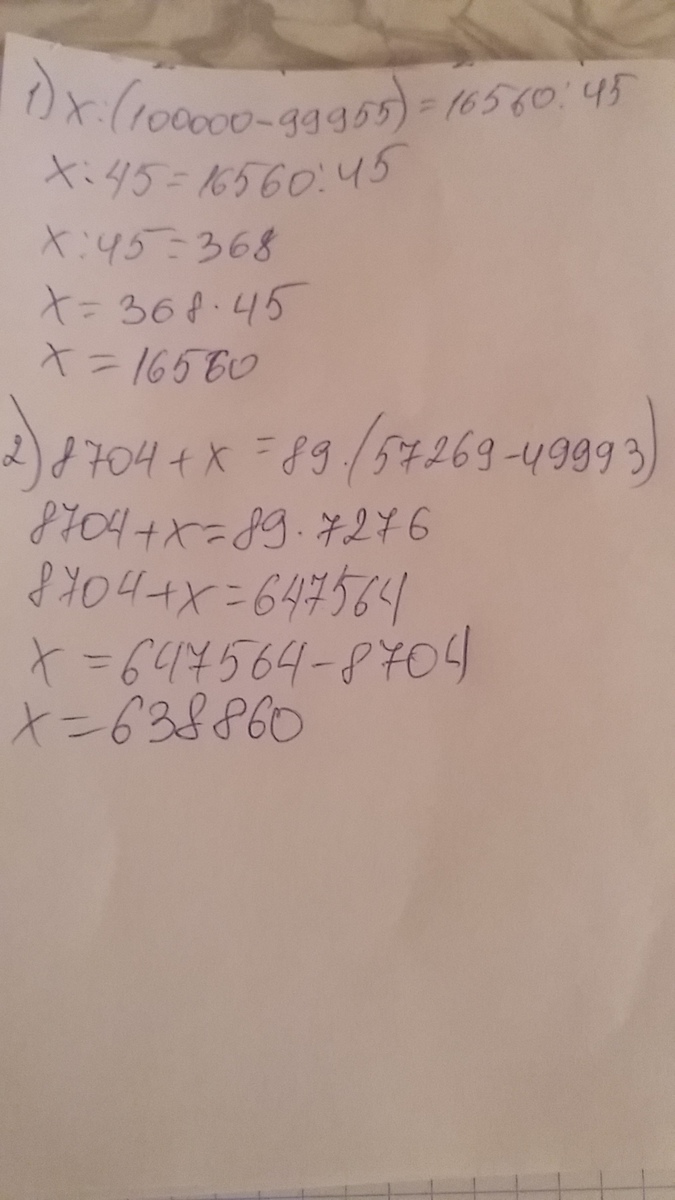 1) x:(100000-99955)=16560:45
x:45=16560:45
x:45=368
x=368·45
x=16560
2) 8704+x=89·(57269-49993)
8704+x=89·7276
8704+x=647564
x=647564-8704
x=638860